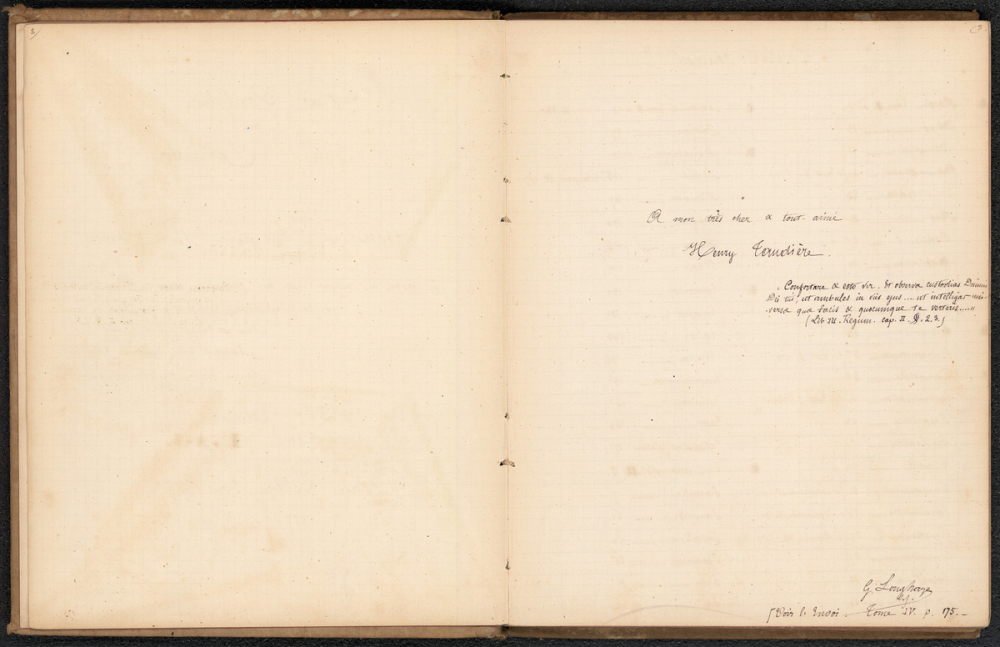 A mon très cher & tout aimé
Henry Taudière.
« Confortare & esto vir. Et observa custodias Domini
Dei tui, ut ambules in viis ejus .... ut intelligas uni-
versa quæ facis & quocumque te verteris ..... »
(Lib III. Regum. cap. II. 2.3.)
G. Longhaye
s.j.
[Voir l'Envoi. Tome IV. p. 175.